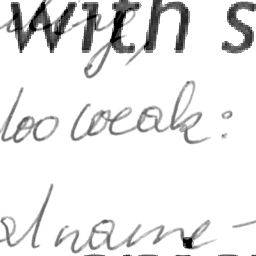 with s
too weak:
al name -